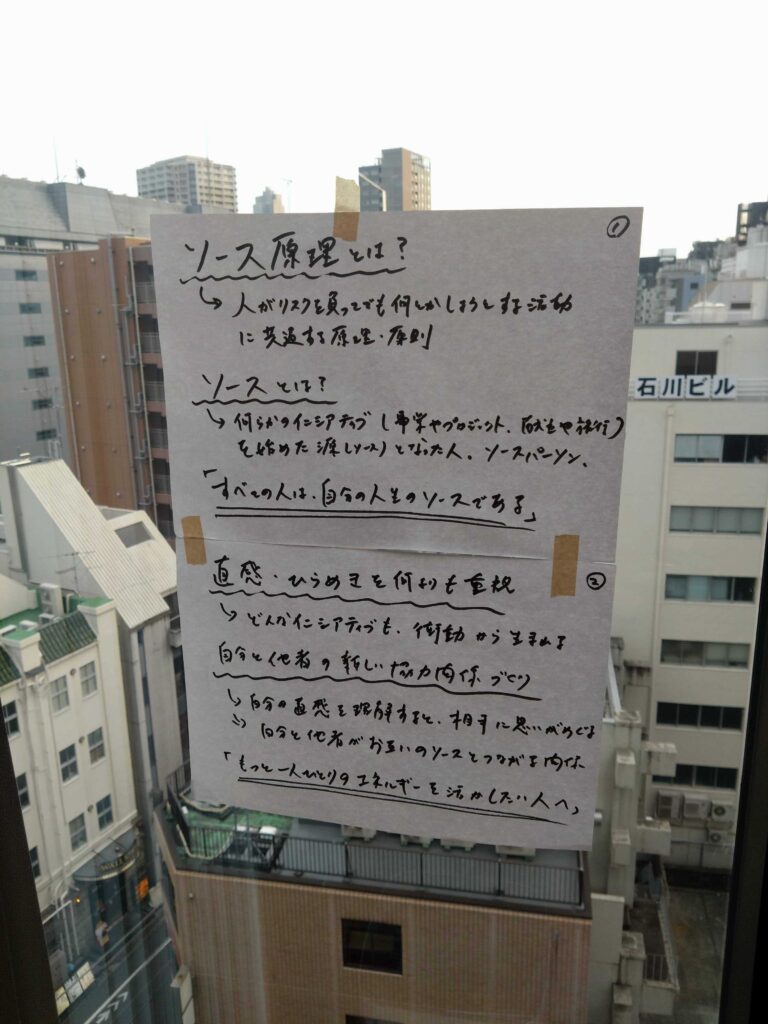 ①
ソース原理とは?
↳ 人がリスクを負ってでも何かしようとする活動
に共通する原理・原則
ソースとは?
↳ 何らかのイニシアティブ(事業やプロジェクト、恋愛や旅行)
を始めた源(ソース)となった人。ソースパーソン。
「すべての人は、自分の人生のソースである」
②
直感・ひらめきを何よりも重視
↳ どんなイニシアティブも、衝動から生まれる
自分と他者の新しい協力関係づくり
↳ 自分の直感を理解すると、相手に思いがめぐる
⇒ 自分と他者がお互いのソースとつながる関係
「もっと一人ひとりのエネルギーを活かしたい人へ」
石川ビル